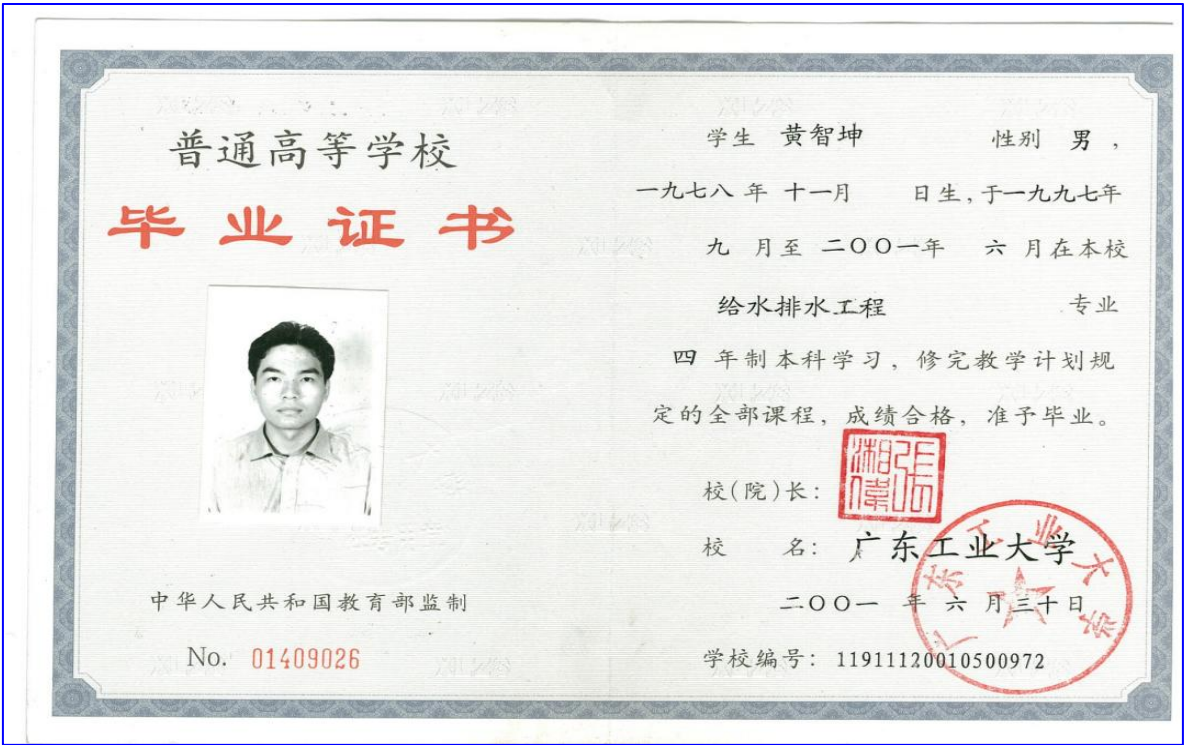 普通高等学校
毕业证书
中华人民共和国教育部监制
No. 01409026
学生 黄智坤 性别 男,
一九七八年十一月 日生,于一九九七年
九 月至 二〇〇一年 六 月在本校
给水排水工程 专业
四 年制本科学习,修完教学计划规
定的全部课程,成绩合格,准予毕业。
校(院)长:
张湘伟
校 名: 广东工业大学
广东工业大学
二〇〇一 年 六 月三十日
学校编号: 11911120010500972